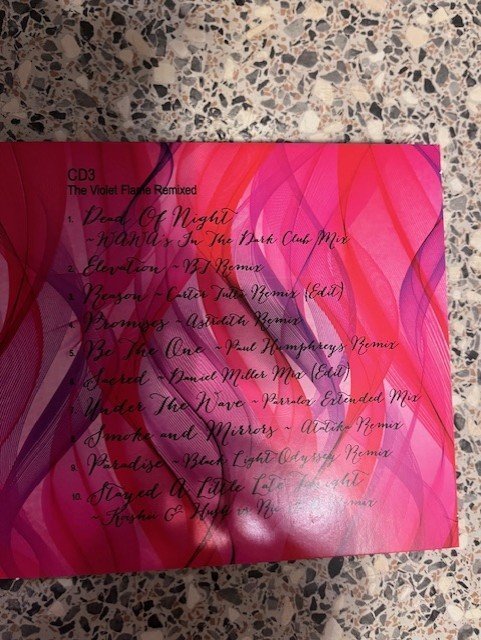 CD3
The Violet Flame Remixed
1. Dead Of Night
~ WAWA's In The Dark Club Mix
2. Elevation ~ BT Remix
3. Reason ~ Carter Tutti Remix (Edit)
4. Promises ~ Astrolith Remix
5. Be The One ~ Paul Humphreys Remix
6. Sacred ~ Daniel Miller Mix (Edit)
Under The Wave ~ Parralox Extended Mix
8. Smoke and Mirrors ~ Atatika Remix
9. Paradise ~ Black Light Odyssey Remix
10. Stayed A Little Late Tonight
~ Kishu & Hush Remix